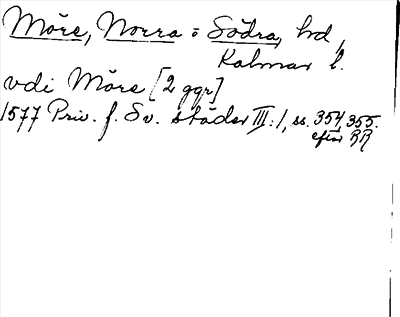 Möre, Norra o Södra, hrd,
Kalmar l.
vdi Möre [2 ggr]
1577 Priv. f. Sv. städer III:1, ss. 354, 355.
efter RR